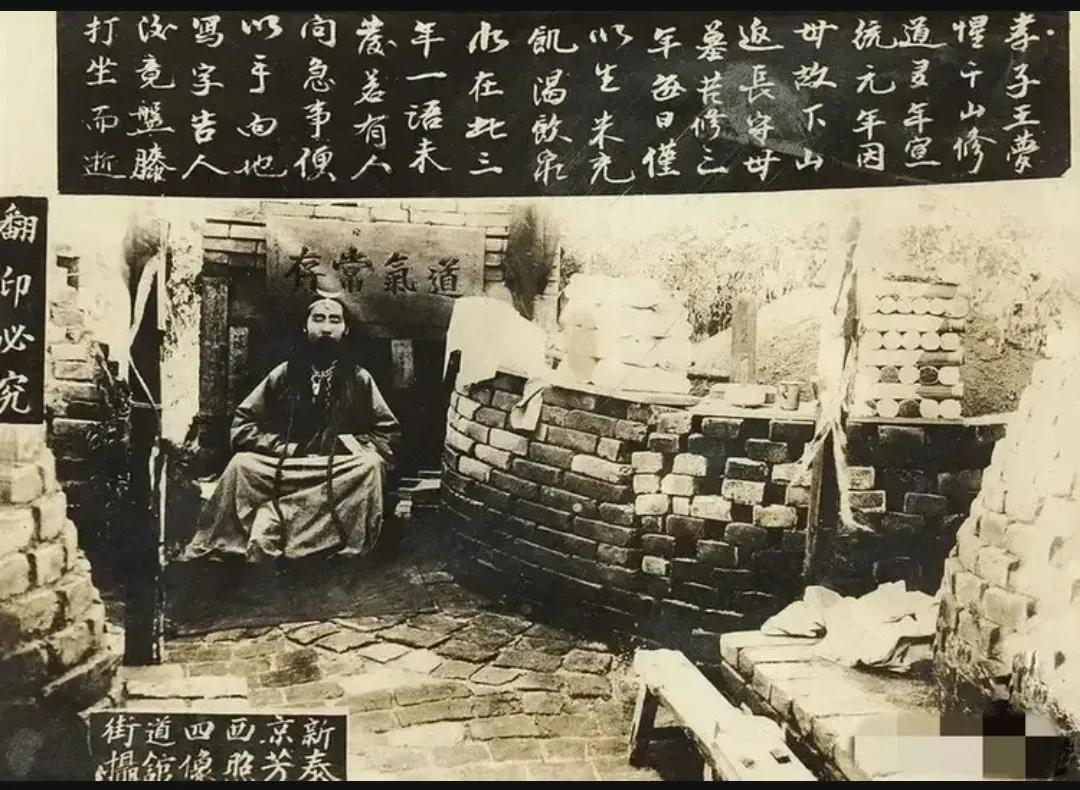 孝子王夢
惺千山修
道年宣
統元年因
母故下山
返長守母
墓苦修三
年每日僅
以生米充
飢渴飲泉
水在此三
年一語未
發若有人
問急事便
以手向地
寫字告人
後竟盤膝
打坐而逝
道氣常存
翻印必究
新京西四道街
泰芳照像館攝